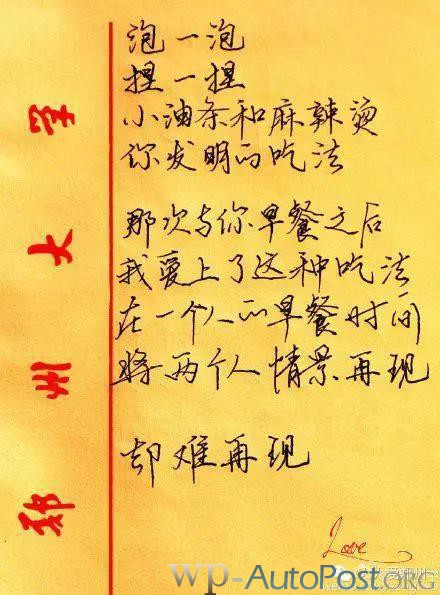 泡一泡
捏一捏
小油条和麻辣烫
你发明的吃法
那次与你早餐之后
我爱上了这种吃法
在一个人的早餐时间
将两个人情景再现
却难再现
Love
郑州大学
WP-AutoPost.ORG